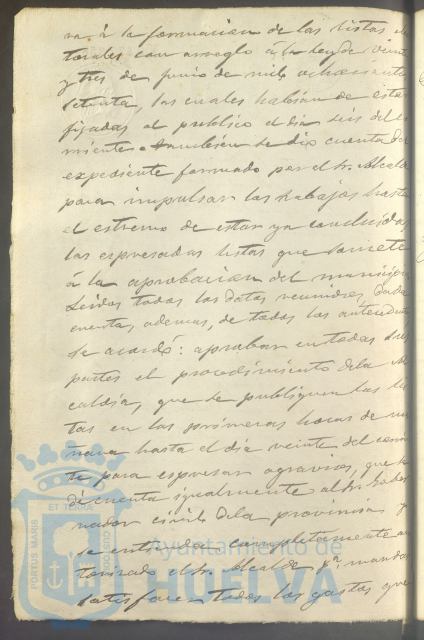 ra á la formacion de las listas elec
torales con arreglo á la Ley de veint
y tres de junio de mil ochocientos
setenta, las cuales habian de estar
fijadas al publico el dia seis del co
miente. Tambien se dio cuenta del
expediente formado por el Sr. Alcalde
para impulsar los trabajos hasta
el estremo de estar ya concluidas
las expresadas listas que somete
á la aprobacion del municipio
Leidos todos los datos reunidos, dada
cuenta, ademas, de todos los antecedentes
se acordó: aprobar en todas sus
partes el procedimiento de la Al
caldia, que se publiquen las lis
tas en las primeras horas de ma
ñana hasta el dia veinte del corrien
te para espresar agravios, que se
dé cuenta igualmente al Sr. Gober
nador civil de la provincia y
se entienda completamente au
torizado el Sr. Alcalde pª. mandar
satisfacer todos los gastos que
PORTUS MARIS ET TERRAE CUSTODIO
Ayuntamiento de
HUELVA